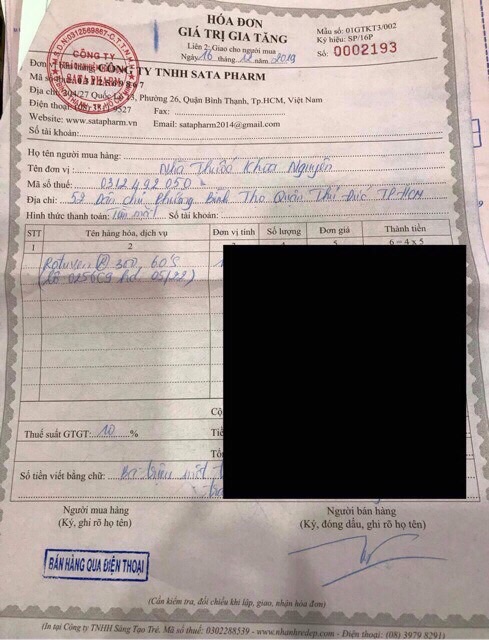 HÓA ĐƠN
GIÁ TRỊ GIA TĂNG
Liên 2: Giao cho người mua
Ngày 16 tháng 12 năm 2019
Mẫu số: 01GTKT3/002
Ký hiệu: SP/16P
Số: 0002193
M.S.D.N: 0312569867-C.T.T.N.H.H
CÔNG TY
TRÁCH NHIỆM HỮU HẠN
SATA PHARM
Đơn vị bán hàng: CÔNG TY TNHH SATA PHARM
Mã số thuế: 0312569867
Địa chỉ: 304/27 Quốc Lộ 13, Phường 26, Quận Bình Thạnh, Tp.HCM, Việt Nam
Điện thoại: Fax:
Website: www.satapharm.vn Email: satapharm2014@gmail.com
Số tài khoản:
Họ tên người mua hàng:
Tên đơn vị: Nhà Thuốc Khoa Nguyên
Mã số thuế: 0312492050
Địa chỉ: 52 Dân chủ, Phường Bình Thọ Quận Thủ Đức TP-HCM
Hình thức thanh toán: tiền mặt Số tài khoản:
STT Tên hàng hóa, dịch vụ Đơn vị tính Số lượng Đơn giá Thành tiền
1 2 3 4 5 6 = 4 x 5
300, 60'S
hd. 05/22)
Cộ
Thuế suất GTGT: 10 % Tiề
Tổ
Số tiền viết bằng chữ: Ba triệu một
Người mua hàng Người bán hàng
(Ký, ghi rõ họ tên) (Ký, đóng dấu, ghi rõ họ tên)
BÁN HÀNG QUA ĐIỆN THOẠI
(Cần kiểm tra, đối chiếu khi lập, giao, nhận hóa đơn)
(In tại Công ty TNHH Sáng Tạo Trẻ. Mã số thuế: 0302288539 - www.nhanhredep.com - Điện thoại: (08) 3979 8291)